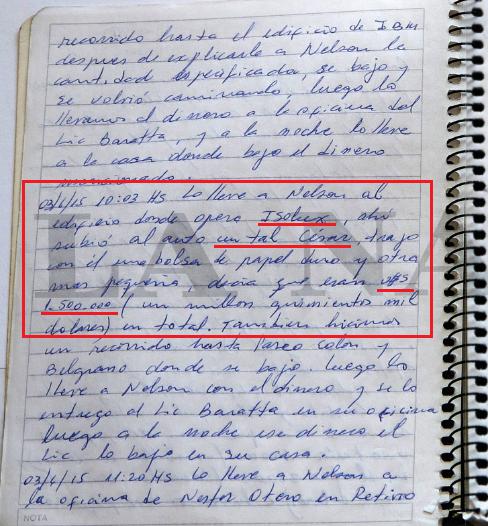 recorrido hasta el edificio de IBM
despues de explicarle a Nelson la
cantidad especificada, se bajo y
se volvió caminando, luego lo
llevamos al dinero a la oficina del
Lic Baratta, y a la noche lo lleve
a la casa donde bajo el dinero
mencionado.
03/6/15 10:03 HS Lo lleve a Nelson al
edificio donde opera ISolux, ahí
subió al auto un tal César, trajo
con él una bolsa de papel duro y otra
mas pequeña, decia que eran U$S
1.500.000 (un millon quinientos mil
dolares) en total. Tambien hicimos
un recorrido hasta Paseo Colon y
Belgrano donde se bajo. Luego lo
lleve a Nelson con el dinero y se lo
entrego al Lic Baratta en su oficina
luego a la noche ese dinero el
Lic lo bajo en su casa.
03/6/15 11:20 HS Lo lleve a Nelson a
la oficina de Nestor Otero en Retiro
NOTA